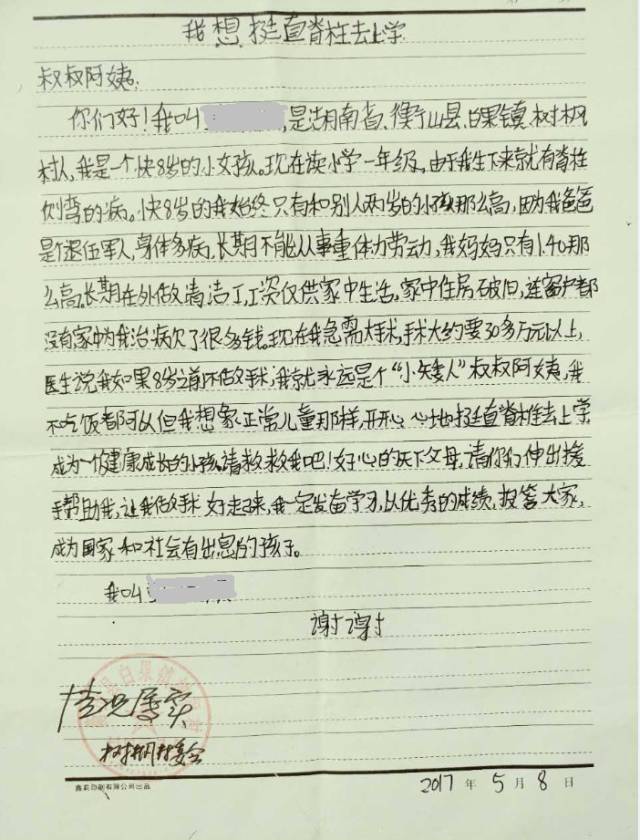 我想挺直脊柱去上学
叔叔阿姨:
你们好!我叫,是湖南省、衡山县、白果镇、树枫
村人,我是一个快8岁的小女孩。现在读小学一年级。由于我生下来就有脊柱
侧弯的病。快8岁的我始终只有和别人两岁的小孩那么高,因为我爸爸
是个退伍军人,身体多病,长期不能从事重体力劳动,我妈妈只有1.40那
么高。长期在外做清洁工,工资仅供家中生活,家中住房破旧,连窗户都
没有家中为我治病欠了很多钱。现在我急需大手术,手术大约要30多万元以上,
医生说我如果8岁之前不做手术,我就永远是个“小矮人”叔叔阿姨,我
不吃饭都可以但我想象正常儿童那样,开开心心地挺直脊柱去上学
成为一个健康成长的小孩。请救救我吧!好心的天下父母,请你们伸出援
手帮助我,让我做手术好走起来,我一定发奋学习,以优秀的成绩,报答大家,
成为国家和社会有出息的孩子。
我叫
谢谢
情况属实
树枫村委会
2017年5月8日
鑫彩印刷有限公司出品